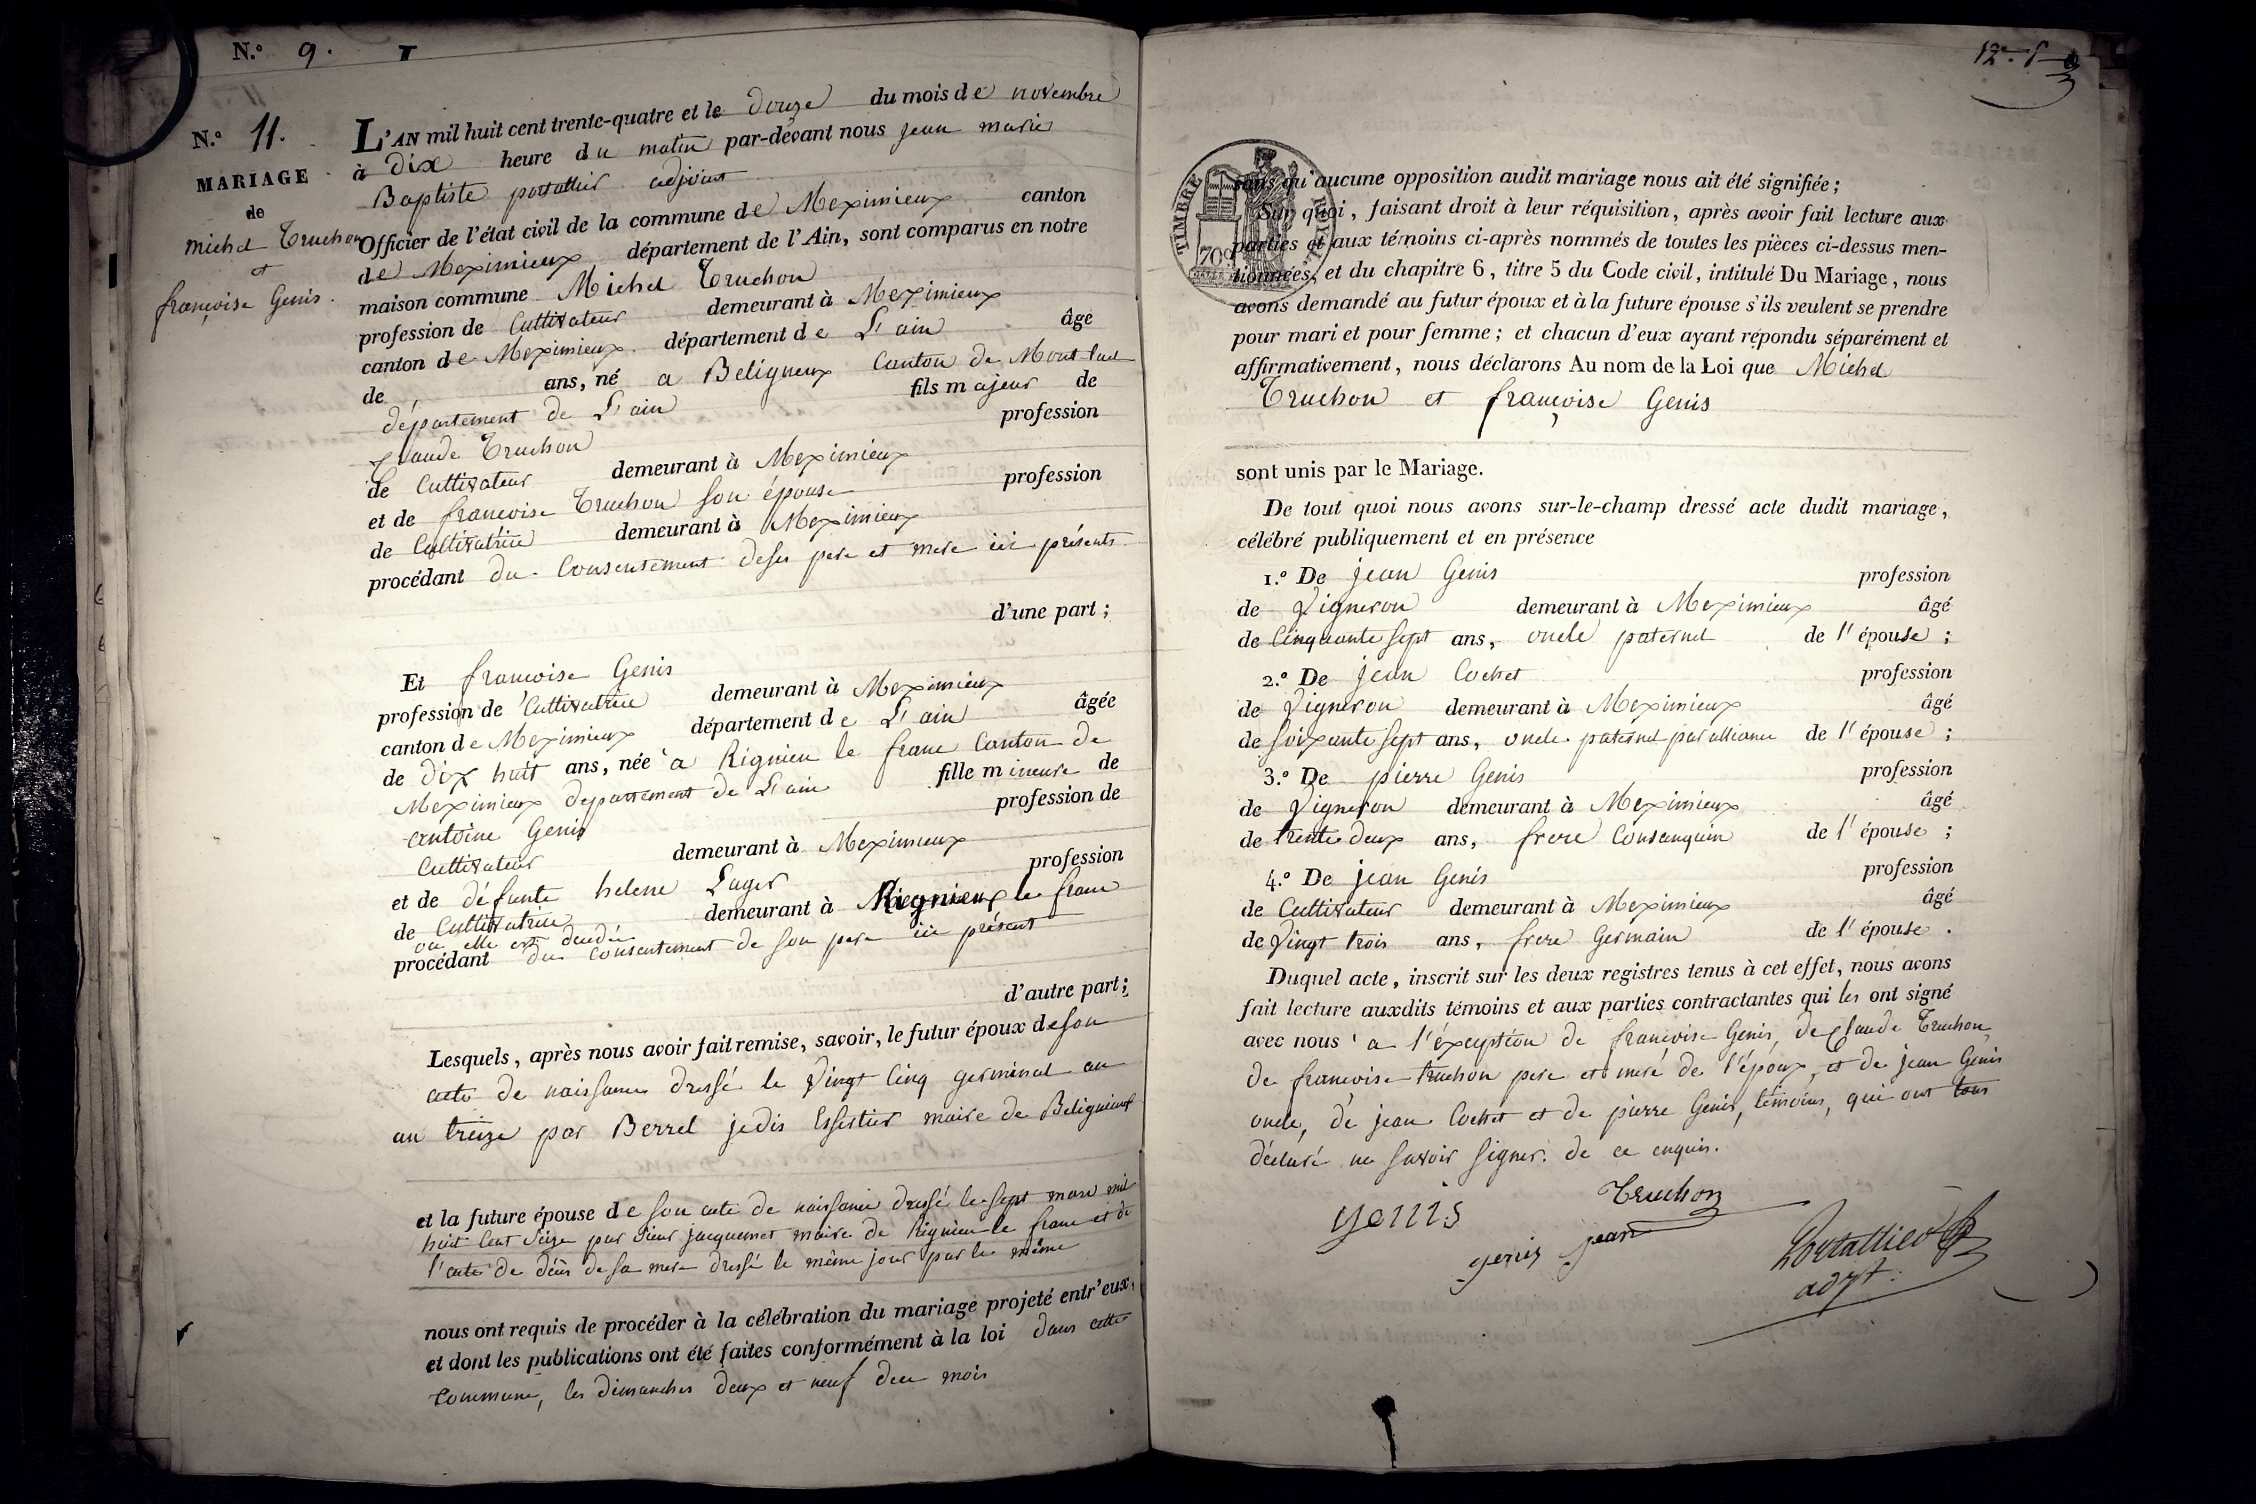 N.º 9.
N.º 11.
MARIAGE
de
michel Truchon
et
françoise Genis.
L'AN mil huit cent trente-quatre et le douze du mois de novembre
à dix heure du matin par-devant nous jean marie
Baptiste portallier adjoint
Officier de l'état civil de la commune de Meximieux canton
de Meximieux département de l'Ain, sont comparus en notre
maison commune Michel Truchon
profession de Cultivateur demeurant à Meximieux
canton de Meximieux département de L'ain âgé
de ans, né a Beligneux Canton de Mont-luel
département de L'ain fils majeur de
Claude Truchon profession
de Cultivateur demeurant à Meximieux
et de francoise Truchon son épouse profession
de Cultivatrice demeurant à Meximieux
procédant du Consentement de ses pere et mere ici présents
d'une part;
Et francoise Genis
profession de Cultivatrice demeurant à Meximieux
canton de Meximieux département de L'ain âgée
de dix huit ans, née a Rignieu le franc Canton de
Meximieux departement de L'ain fille mineure de
antoine Genis profession de
Cultivateur demeurant à Meximieux
et de défunte helene Lager profession
de Cultivatrice demeurant à Rignieux le franc
ou elle est décédée
procédant du consentement de son pere ici présent
d'autre part;
Lesquels, après nous avoir fait remise, savoir, le futur époux de son
acte de naissance dressé le vingt Cinq germinal an
an treize par Berrel jadis Essertier maire de Beligneux
et la future épouse de son acte de naissance dressé le sept mars mil
huit Cent Seize par Sieur jacquemet maire de Rignieu le franc et de
l'acte de décès de sa mere dressé le même jour par le même
nous ont requis de procéder à la célébration du mariage projeté entr'eux,
et dont les publications ont été faites conformément à la loi dans cette
commune, les dimanches deux et neuf du mois
sans qu'aucune opposition audit mariage nous ait été signifiée;
Sur quoi, faisant droit à leur réquisition, après avoir fait lecture aux
parties et aux témoins ci-après nommés de toutes les pièces ci-dessus men-
tionnées, et du chapitre 6, titre 5 du Code civil, intitulé Du Mariage, nous
avons demandé au futur époux et à la future épouse s'ils veulent se prendre
pour mari et pour femme; et chacun d'eux ayant répondu séparément et
affirmativement, nous déclarons Au nom de la Loi que Michel
Truchon et françoise Genis
TIMBRE ROYAL
70 c
sont unis par le Mariage.
De tout quoi nous avons sur-le-champ dressé acte dudit mariage,
célébré publiquement et en présence
1.º De jean Genis profession
de Vigneron demeurant à Meximieux âgé
de Cinquante sept ans, oncle paternel de l'épouse;
2.º De jean Cochet profession
de Vigneron demeurant à Meximieux âgé
de soixante sept ans, oncle paternel par alliance de l'épouse;
3.º De pierre Genis profession
de Vigneron demeurant à Meximieux âgé
de trente deux ans, frere Consanguin de l'épouse;
4.º De jean Genis profession
de Cultivateur demeurant à Meximieux âgé
de Vingt trois ans, frere Germain de l'épouse.
Duquel acte, inscrit sur les deux registres tenus à cet effet, nous avons
fait lecture auxdits témoins et aux parties contractantes qui les ont signé
avec nous a l'éxception de francoise Genis, de Claude Truchon,
de francoise truchon pere et mere de l'époux, et de jean Genis
oncle, de jean Cochet et de pierre Genis, témoins, qui ont tous
déclaré ne savoir signer. de ce enquis.
genis
Truchon
genis jean
Portallier
adjt.